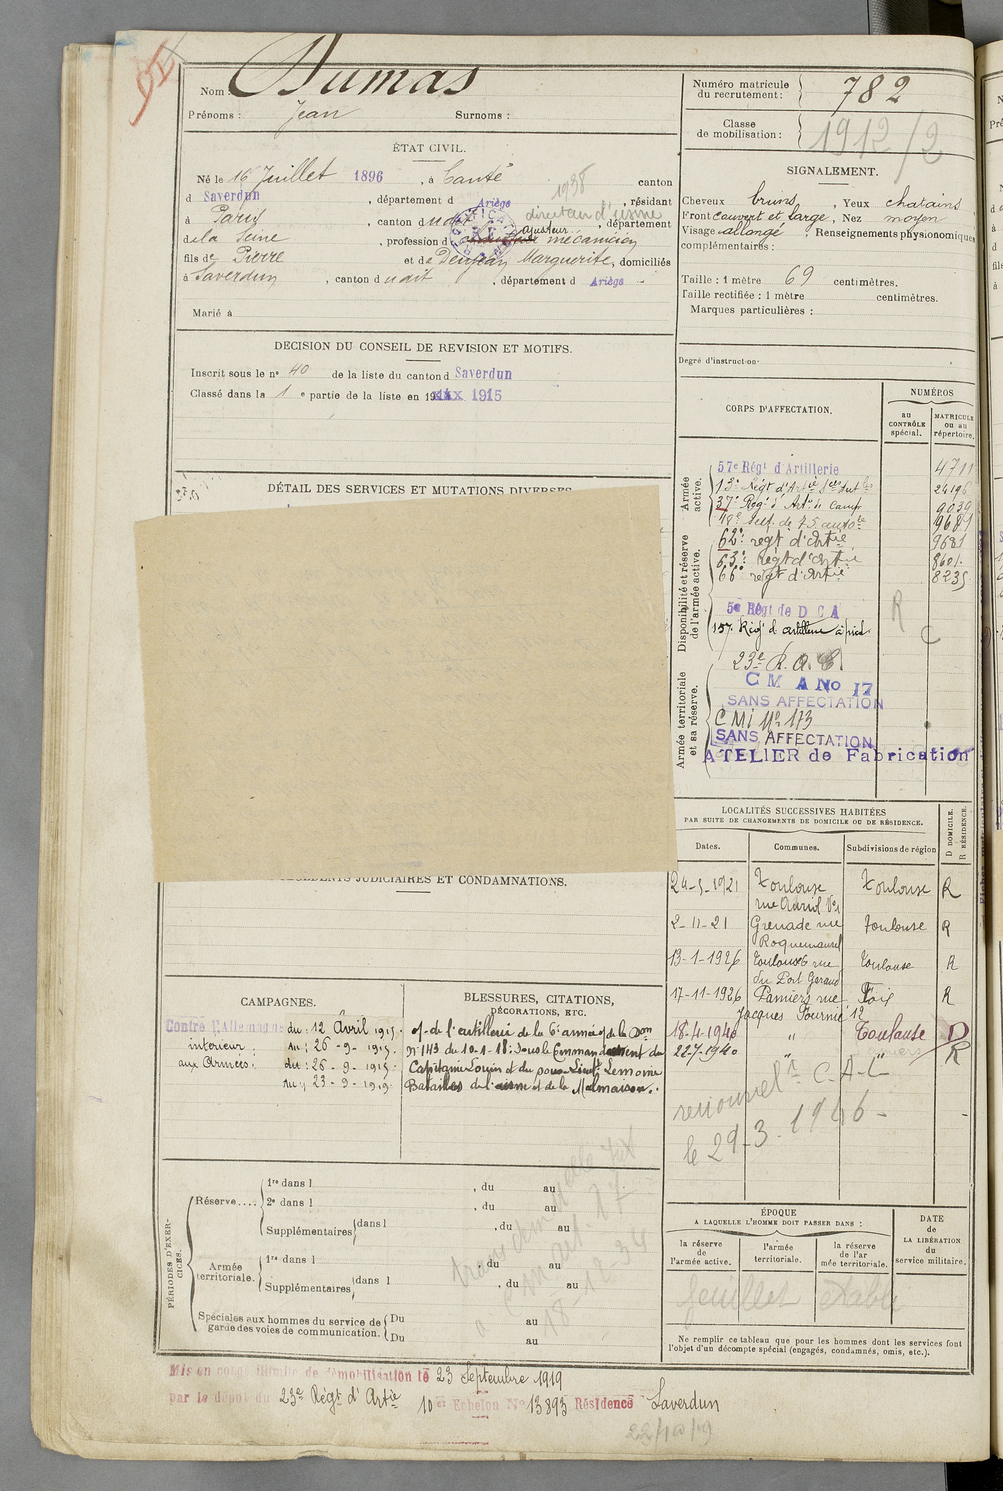 Nom : Dumas
Prénoms : Jean Surnoms :
Numéro matricule du recrutement : 782
Classe de mobilisation : 1912/2
ÉTAT CIVIL.
Né le 16 Juillet 1896, à Canté canton
d Saverdun, département d Ariège, résidant
1938
à Paris, canton d udit, département
directeur d'usine
de la Seine, profession d ajusteur mécanicien
fils de Pierre et de Dejean Marguerite, domiciliés
à Saverdun, canton d udit, département d Ariège
Marié à
SIGNALEMENT.
Cheveux bruns, Yeux chatains
Front couvert et large, Nez moyen
Visage allongé Renseignements physionomiques
complémentaires :
Taille : 1 mètre 69 centimètres.
Taille rectifiée : 1 mètre centimètres.
Marques particulières :
Degré d'instruction
DECISION DU CONSEIL DE REVISION ET MOTIFS.
Inscrit sous le n° 40 de la liste du canton d Saverdun
Classé dans la 1 e partie de la liste en 1915
DÉTAIL DES SERVICES ET MUTATIONS DIVERSES
CORPS D'AFFECTATION.
NUMÉROS
au CONTRÔLE spécial.
MATRICULE ou au répertoire.
Armée active.
57e Régt d'Artillerie 4711
13e Régt d'Artie 24196
37e Régt d'Artie de Camp 9039
48e 9681
62e regt d'Artie 9681
Disponibilité et réserve de l'armée active.
63e Régt d'Artie 8601
66e regt d'Artie 8235
5e Régt de D C A
157e Régt d'artillerie à pied
R C
Armée territoriale et sa réserve.
23e R. A. C.
C M A No 17
SANS AFFECTATION
C M I N° 173
SANS AFFECTATION
ATELIER de Fabrication
ANTÉCÉDENTS JUDICIAIRES ET CONDAMNATIONS.
LOCALITÉS SUCCESSIVES HABITÉES
PAR SUITE DE CHANGEMENTS DE DOMICILE OU DE RÉSIDENCE.
D DOMICILE.
R RÉSIDENCE.
Dates. Communes. Subdivisions de région
24-5-1921 Toulouse Toulouse R
rue
2-11-21 Grenade rue Toulouse R
Roquemaurel
13-1-1926 Toulouse rue Toulouse R
du Port Garaud
17-11-1926 Pamiers rue Foix R
Jacques Fournié 12
18-4-1940 " Toulouse D
22-7-1940 " R
renouvelt C.A.C
le 29-3-1946
CAMPAGNES.
Contre l'Allemagne du : 12 Avril 1915.
intérieur : au : 26-9-1915.
aux Armées : du : 26-9-1915.
au : 23-9-1919.
BLESSURES, CITATIONS,
DÉCORATIONS, ETC.
de l'artillerie de la 6e armée de la Don
N° 143 du 10-1-18 : sous le Commandement du
Capitaine Louin et du sous-Lieut Lemoine
Batailles de l'aisne et de la Malmaison.
PÉRIODES D'EXERCICES.
Réserve.... 1re dans l , du au
2e dans l , du au
Supplémentaires dans l , du au
Armée territoriale. 1re dans l , du au
Supplémentaires dans l , du au
Spéciales aux hommes du service de garde des voies de communication. Du au
Du au
18-12-34
ÉPOQUE
A LAQUELLE L'HOMME DOIT PASSER DANS :
la réserve de l'armée active.
l'armée territoriale.
la réserve de l'armée territoriale.
DATE DE LA LIBÉRATION du service militaire.
feuillet
Ne remplir ce tableau que pour les hommes dont les services font
l'objet d'un décompte spécial (engagés, condamnés, omis, etc.).
Mis en congé illimité de démobilisation le 23 Septembre 1919
par le dépôt du 23e Régt d'Artie 10e Echelon No 13893 Résidence Saverdun
22/10/19